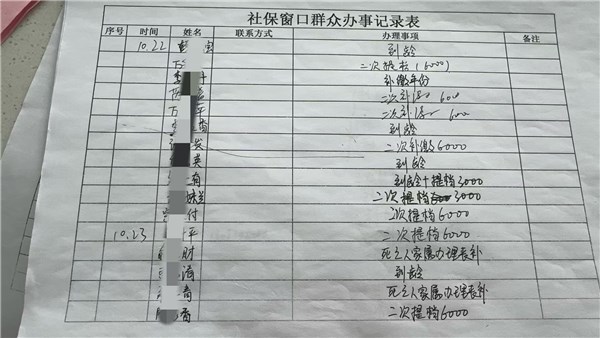 社保窗口群众办事记录表
序号 时间 姓名 联系方式 办理事项 备注
10.22 宝 到龄
万 二次提档(6000)
补缴年份
二次补缴 600
万 平 二次补缴 600
香 到龄
发 二次补缴6000
类 到龄
有 到龄+提档3000
二次提档3000
付 二次提档6000
10.23 平 二次提档6000
财 死亡人家属办理丧补
清 到龄
香 死亡人家属办理丧补
香 二次提档6000